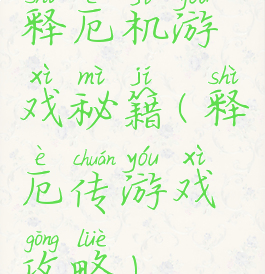 shì è jī yóu
释厄机游
xì mì jí shì
戏秘籍(释
è chuán yóu xì
厄传游戏
gōng lüè
攻略)